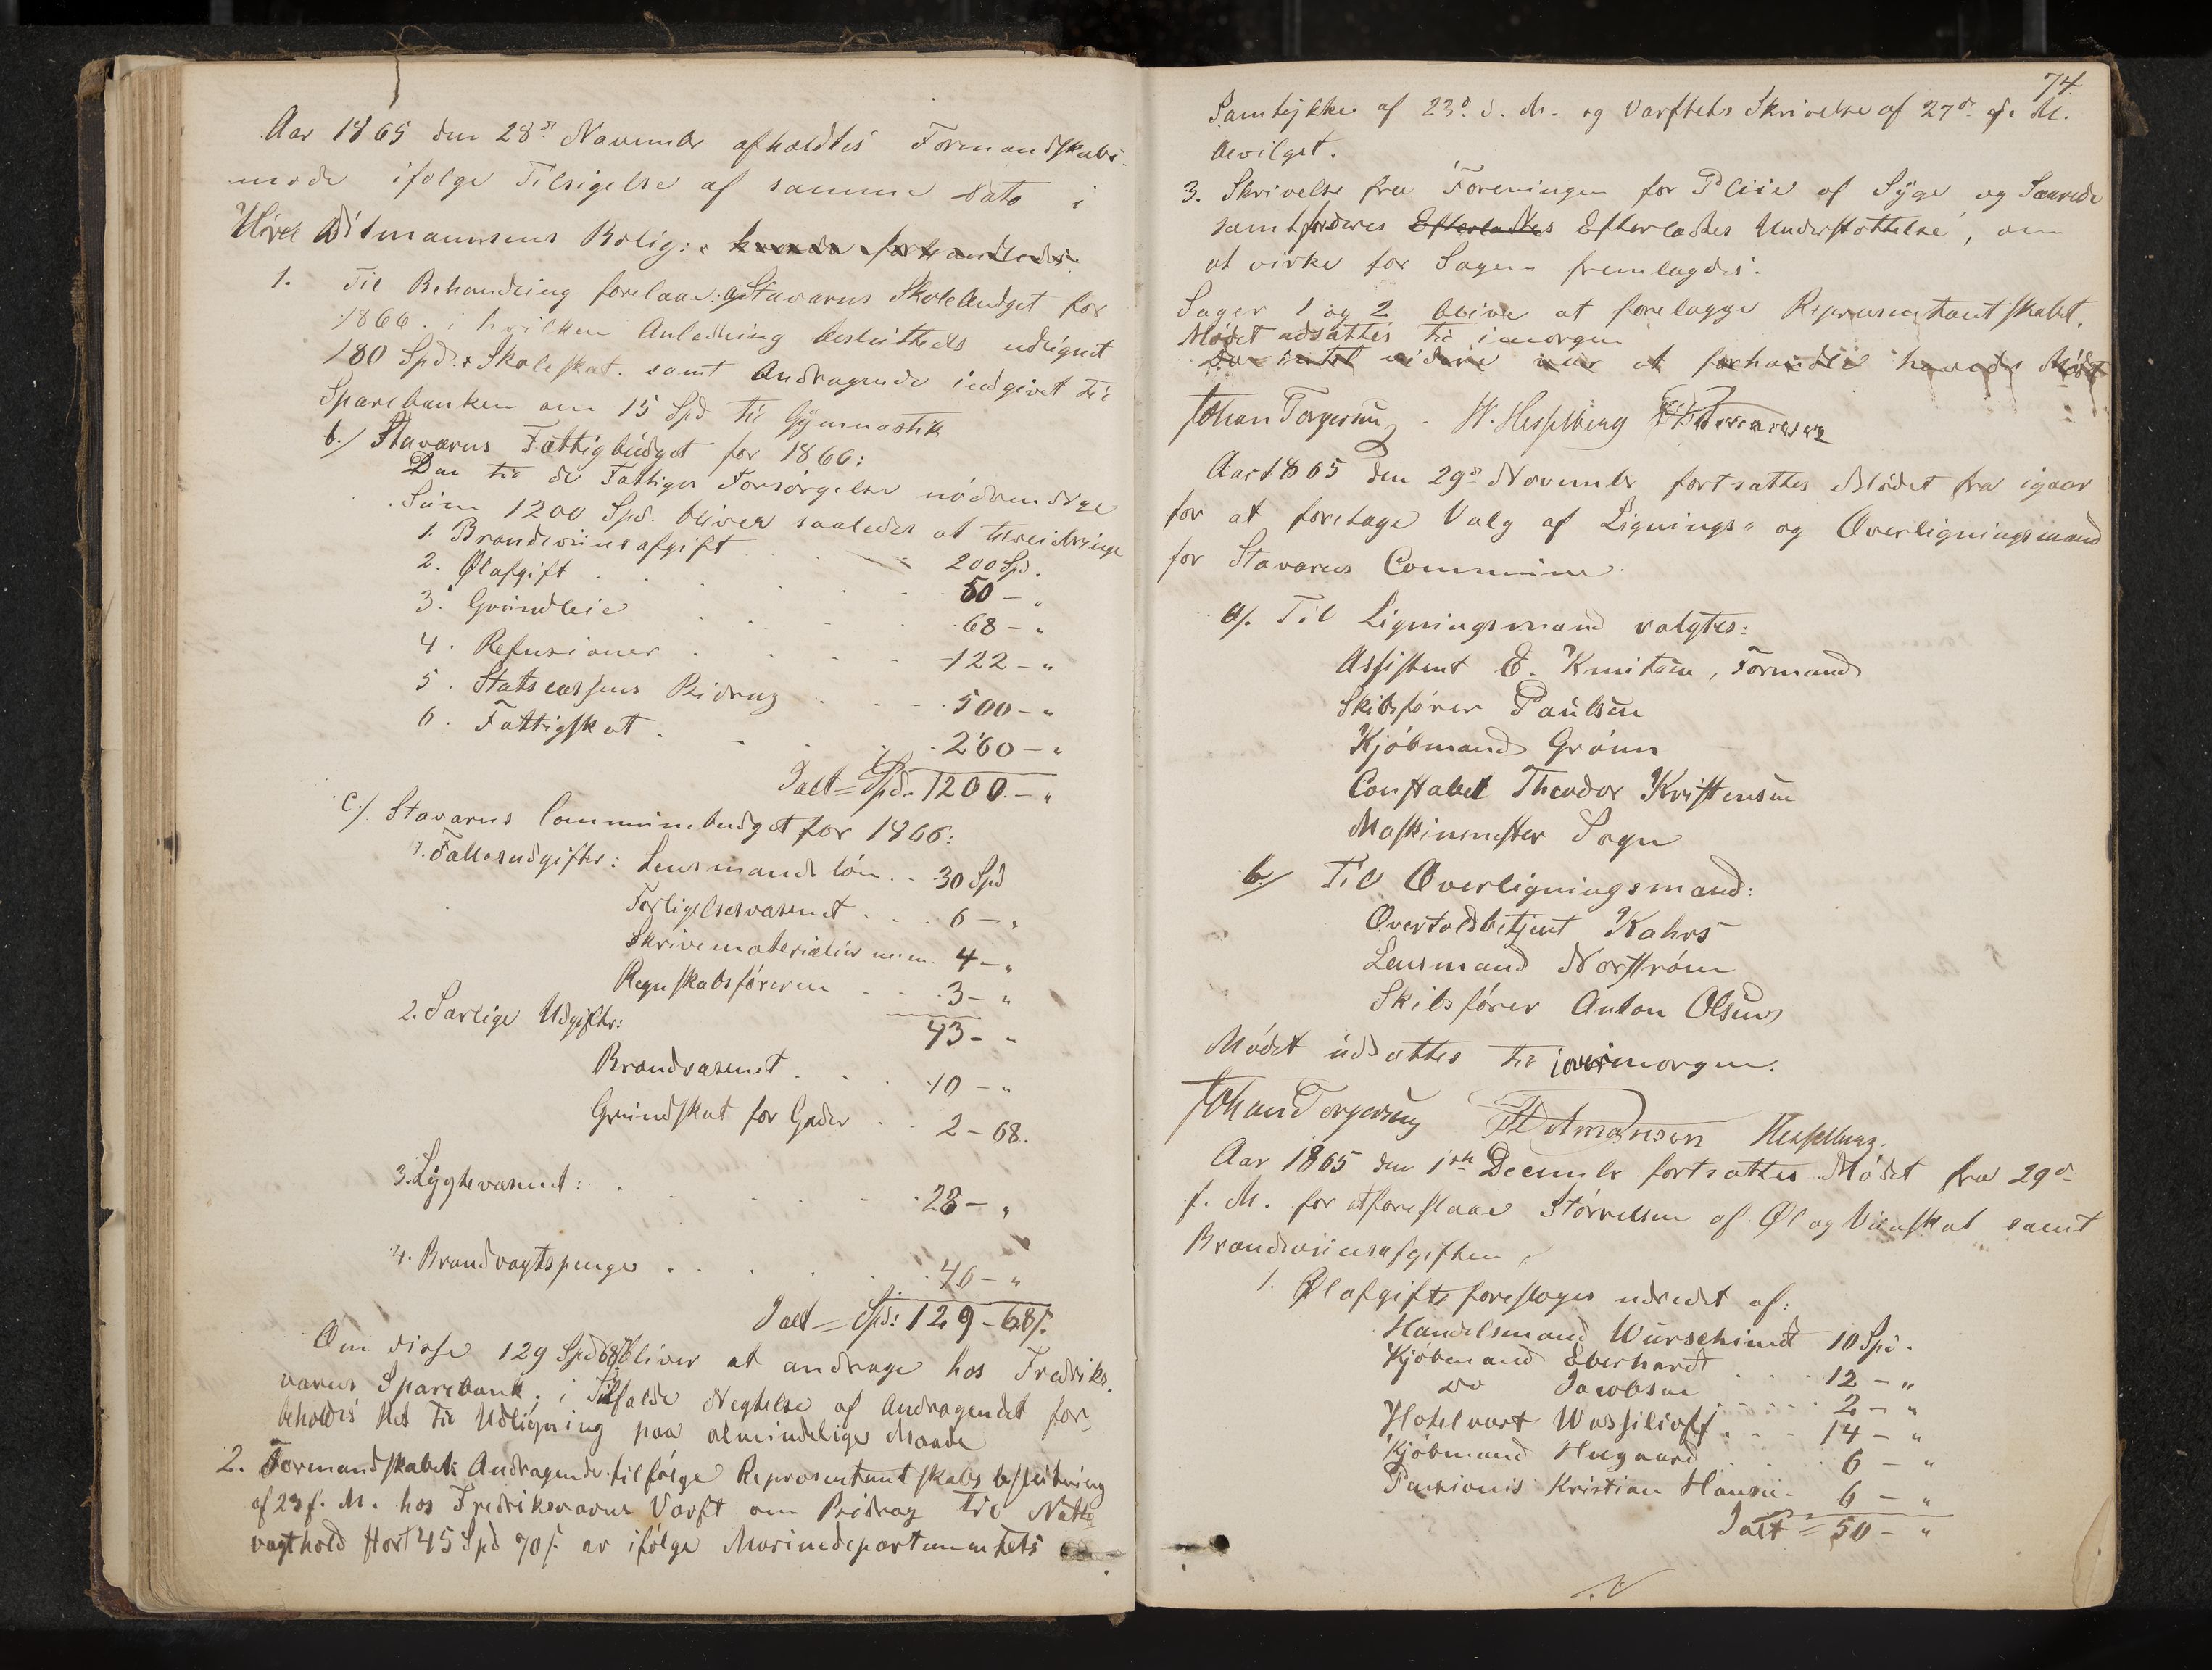 Aar 1865 den 28de November afholdtes Formandskabs-
møde ifølge Tilsigelse af samme Dato i
Ditmannsens Bolig: hvorda forhandledes
1. Til Behandling forelaae: a/ Staværns Skolebudget for
1866. i hvilken Anledning besluttedes udlignet
180 Spd. Skoleskat. samt Andragende indgivet til
Sparebanken om 15 Spd til Gymnastik
b./ Staværns Fattigbudget for 1866:
Den til de Fattiges Forsørgelse nødvendige
Sum 1200 Spd. bliver saaledes at tilveiebringe
1. Brændeviinsafgift . . 200 Spd.
2. Ølafgift . . . . . 50 – "
3. Grundleie . . . . 68 – "
4. Refusioner . . . . 122 – "
5. Statscassens Bidrag . . . 500 – "
6. Fattigskat . . . . 260 – "
Ialt = Spd. 1200. – "
c./ Staværns Communebudget for 1866:
1. Fællesudgifter: Lensmands løn . . 30 Spd
Forligelsesvæsenet . . . 6 – "
Skrivematerialier m.m. 4 – "
Regnskabsføreren . . . 3 – "
43 – "
2. Særlige Udgifter:
Brandvæsenet . . . 10 – "
Grundskat for Gader . . 2 – 68.
3. Lygtevæsenet: . . . . . 28 – "
4. Brandvagtspenge . . . . . 46 – "
Ialt = Spd: 129 – 68 /.
Om disse 129 Spd 68 bliver at andrage hos Fredriks-
værns Sparebank; i Tilfælde Negtelse af Andragendet for-
beholdes Ret til Udligning paa almindelige Maade
2. Formandskabets Andragende tilfølge Repræsentantskabs beslutning
af 23 f. M. hos Fredriksværns Værft om Bidrag til Natte
vagthold stort 45 Spd 70 /. er ifølge Marinedepartementets
74
Samtykke af 23de d. M. og Værftets Skrivelse af 27de d. M.
bevilget.
3. Skrivelse fra Foreningen for Pleie af Syge og Saarede
samt Efterladtes Efterladtes Understøttelse, om
at virke for Sagen fremlagdes.
Sager 1 og 2 blive at forelægge Repræsentantskabet.
Mødet udsattes til imorgen
Da intet videre var at forhandle hævedes Mødet
Johan Torgersen H. Hesselberg
Aar 1865 den 29de November fortsattes Mødet fra igaar
for at foretage Valg af Lignings- og Overligningsmænd
for Staværns Commune.
a/. Til Ligningsmænd valgtes:
Assistent E. Knutsen, Formand
Skibsfører Paulsen
Kjøbmand Grønn
Constabel Theodor Kristensen
Maskinmester Sogn
b./ Til Overligningsmænd:
Overtoldbetjent Kahrs
Lensmand Norstrøm
Skibsfører Anton Olsen
Mødet udsattes til iovermorgen.
Johan Torgersen Ditmansen Hesselberg.
Aar 1865 den 1ste December fortsattes Mødet fra 29de
f. M. for at foreslaae Størrelsen af Øl og Viinskat samt
Brændeviinsafgiften
1. Ølafgift foreslages udredet af:
Handelsmand Würschmidt 10 Spd.
Kjøbmand Eberhardt . . . 12 – "
Do Jacobsen . . . . 2 – "
Hotelvært Wassilioff . . . 14 – "
Kjøbmand Hugaard . . . 6 – "
Kristian Hansen. 6 – "
Ialt = 50 – "